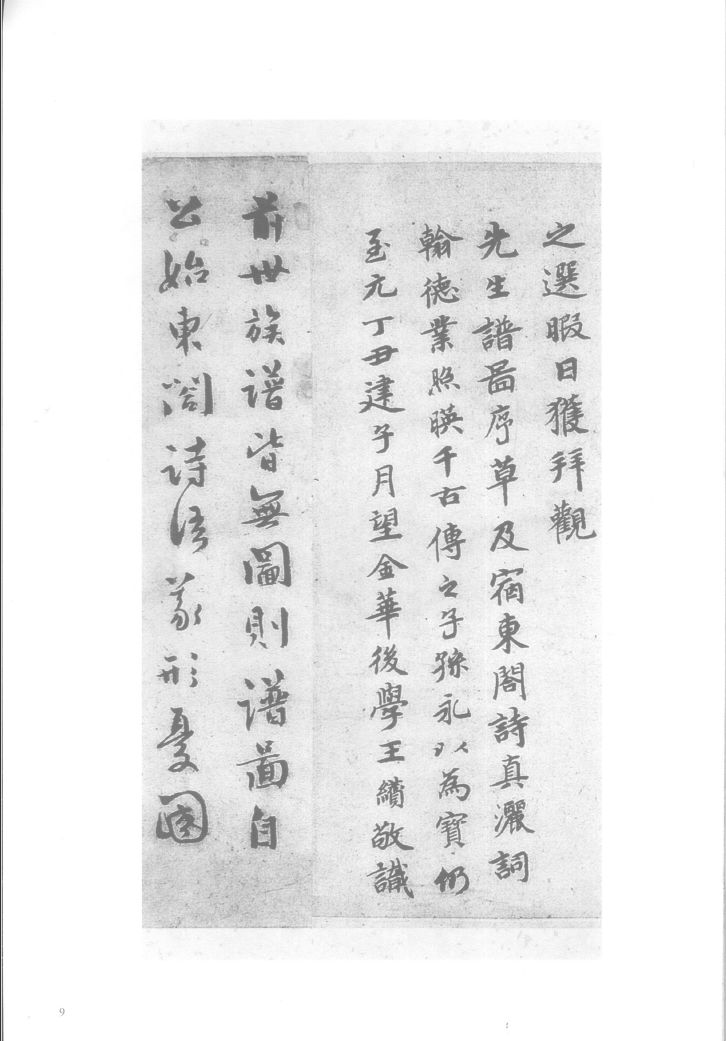 之選暇日獲拜觀
先生譜啚序草及宿東閣詩真灑詞
翰德業照暎千古傳之子孫永以為寶仍
至元丁丑建子月望金華後學王纘敬識
前世族譜皆無圖則譜啚自
公始東閣詩語蒙形憂國
9